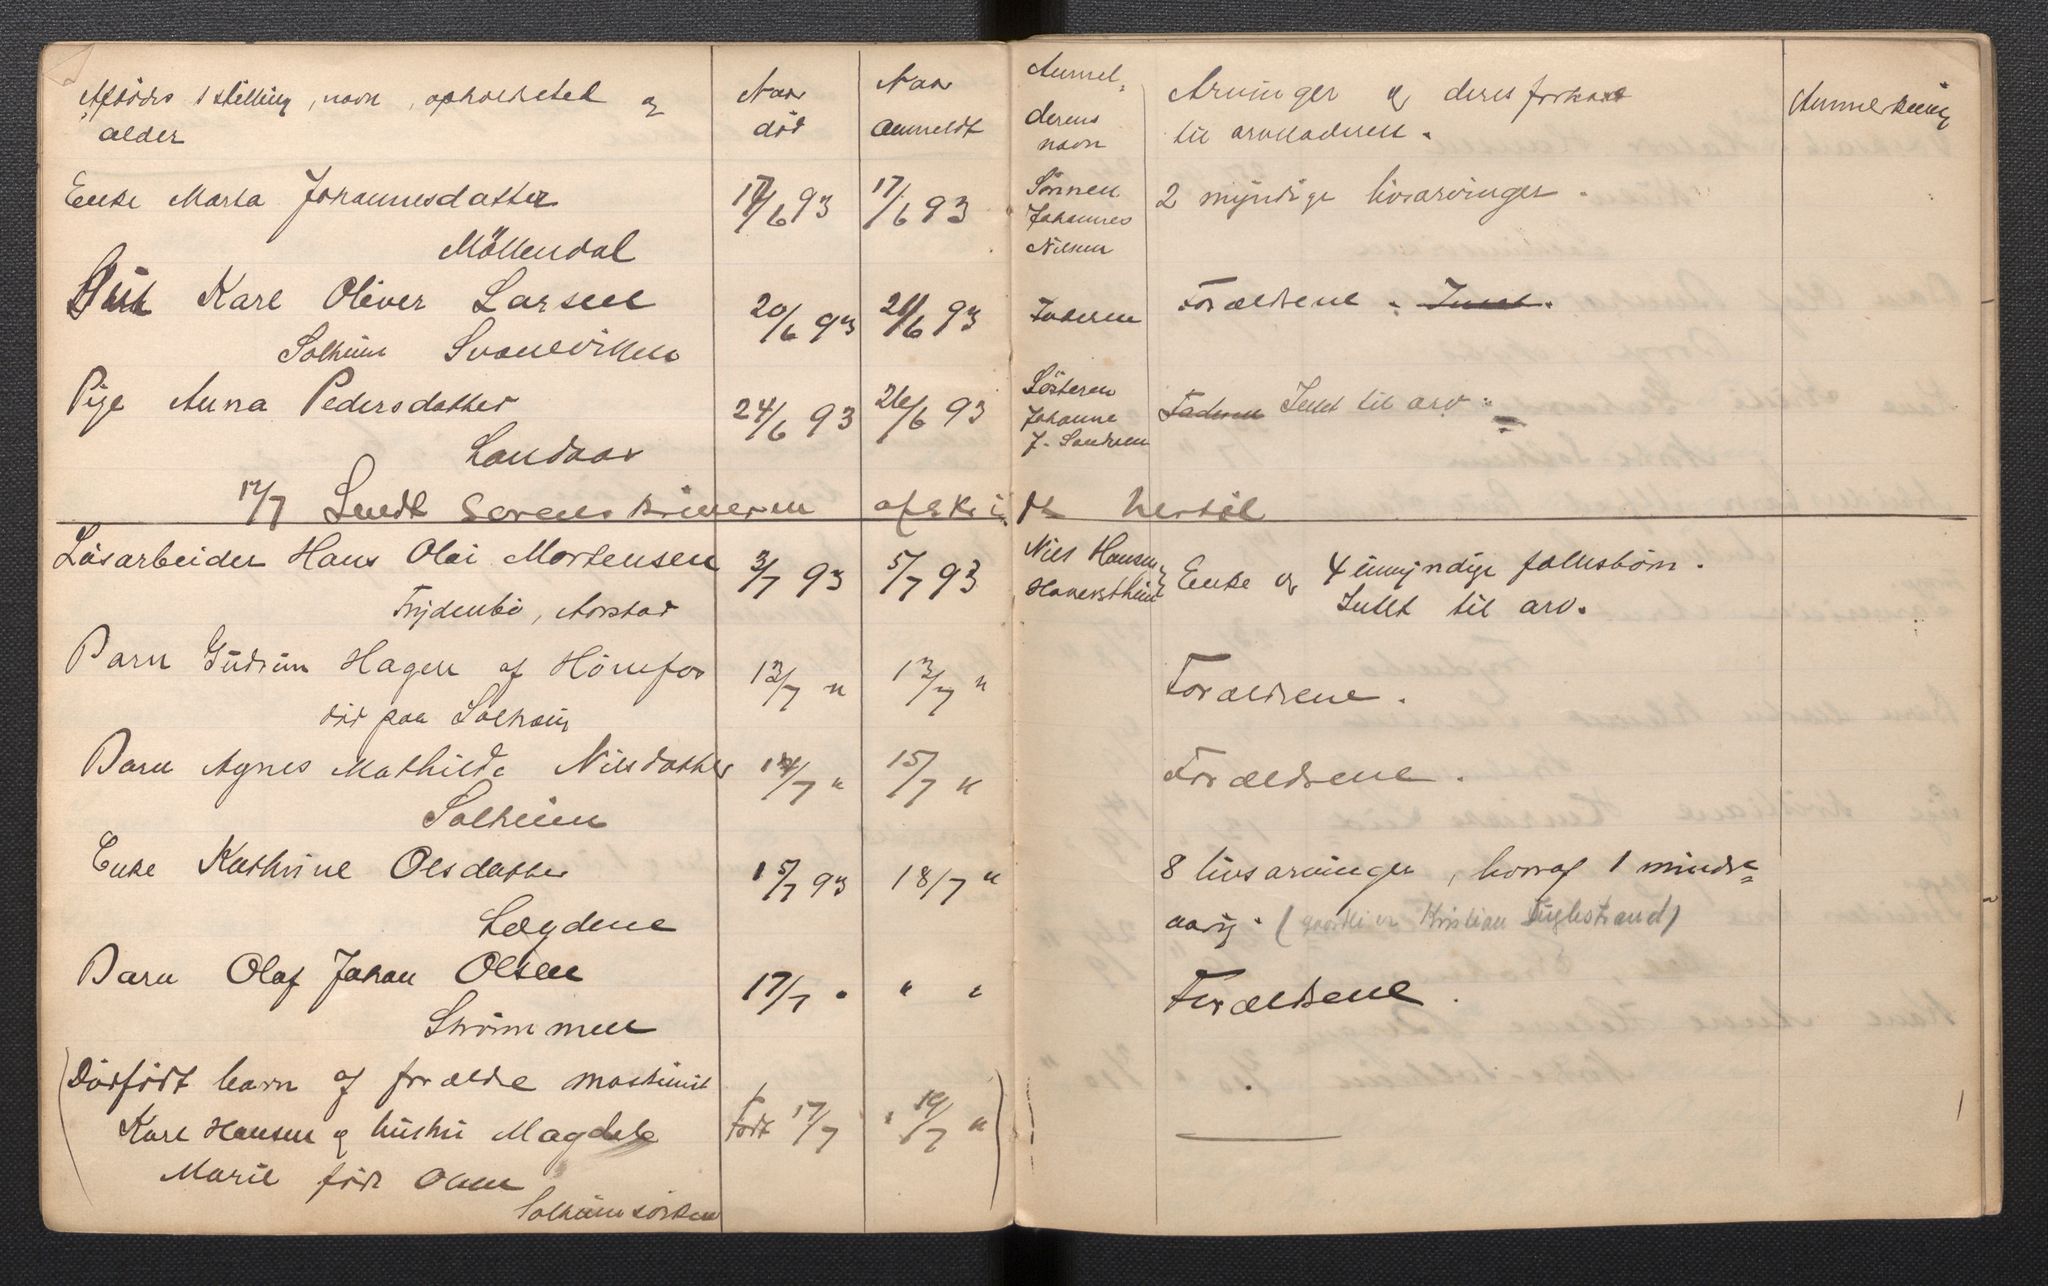 Afdødes stilling, navn, opholdssted og
alder
Naar
død
Naar
anmeldt
Anmel-
derens
navn
Arvinger og deres forhold
til arveladeren.
Anmerkning
Enke Marta Johannesdatter
Möllendal
17/6 93
17/6 93
Sønnen
Johannes
Nilsen
2 myndige livsarvinger.
Karl Oliver Larsen
Solheim Svaneviken
20/6 93
21/6 93
Faderen
Forældrene. Intet.
Pige Anna Pedersdatter
Landaas
24/6 93
26/6 93
Søsteren
Johanne
J. Sandven
Faderen Intet til arv.
12/7 Sendt sorenskriveren afskrift hertil
Løsarbeider Hans Olai Mortensen
Frydenbø, Aarstad
3/7 93
5/7 93
Nils Hansen
Enke og 4 umyndige fællesbørn.
Intet til arv.
Barn Gudrun Hagen af Hønefos
død paa Solheim
13/7 "
13/7 "
Forældrene.
Barn Agnes Mathilde Nilsdatter
Solheim
14/7 "
15/7 "
Forældrene.
Enke Kathrine Olsdatter
Lægdene
15/7 93
18/7 "
8 livsarvinger, hvoraf 1 mindre-
aarig. (Kristian Fuglestrand)
Barn Olaf Johan Olsen
Strømmen
17/7 "
" "
Forældrene.
(Dødfødt barn af forældre maskinist
Karl Hansen og hustru Magdale
Marie født Olsen
Solheimsviken
født 17/7
19/7 ")